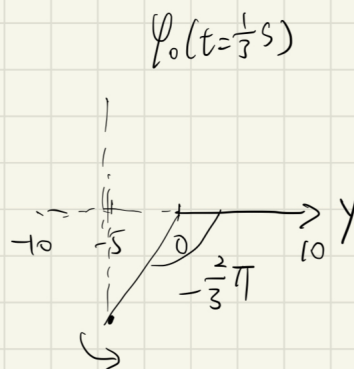 φ₀(t=⅓s)
-10 -5 0 10 y
-⅔π